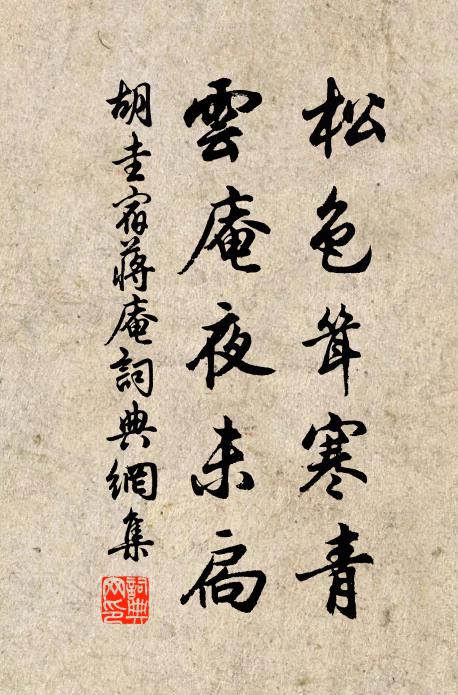 松色耸寒青
雲庵夜未扃
胡奎宿蔣庵詞典網集
詞典网印